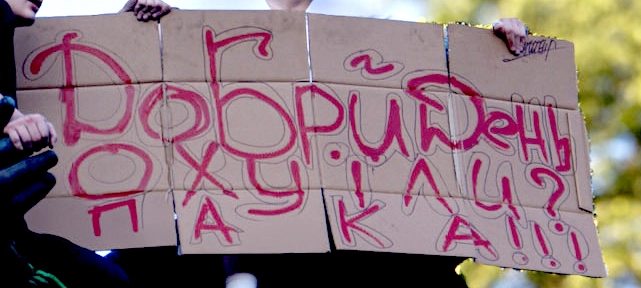 Добрий День
Охуїли?
ПАКА!!!